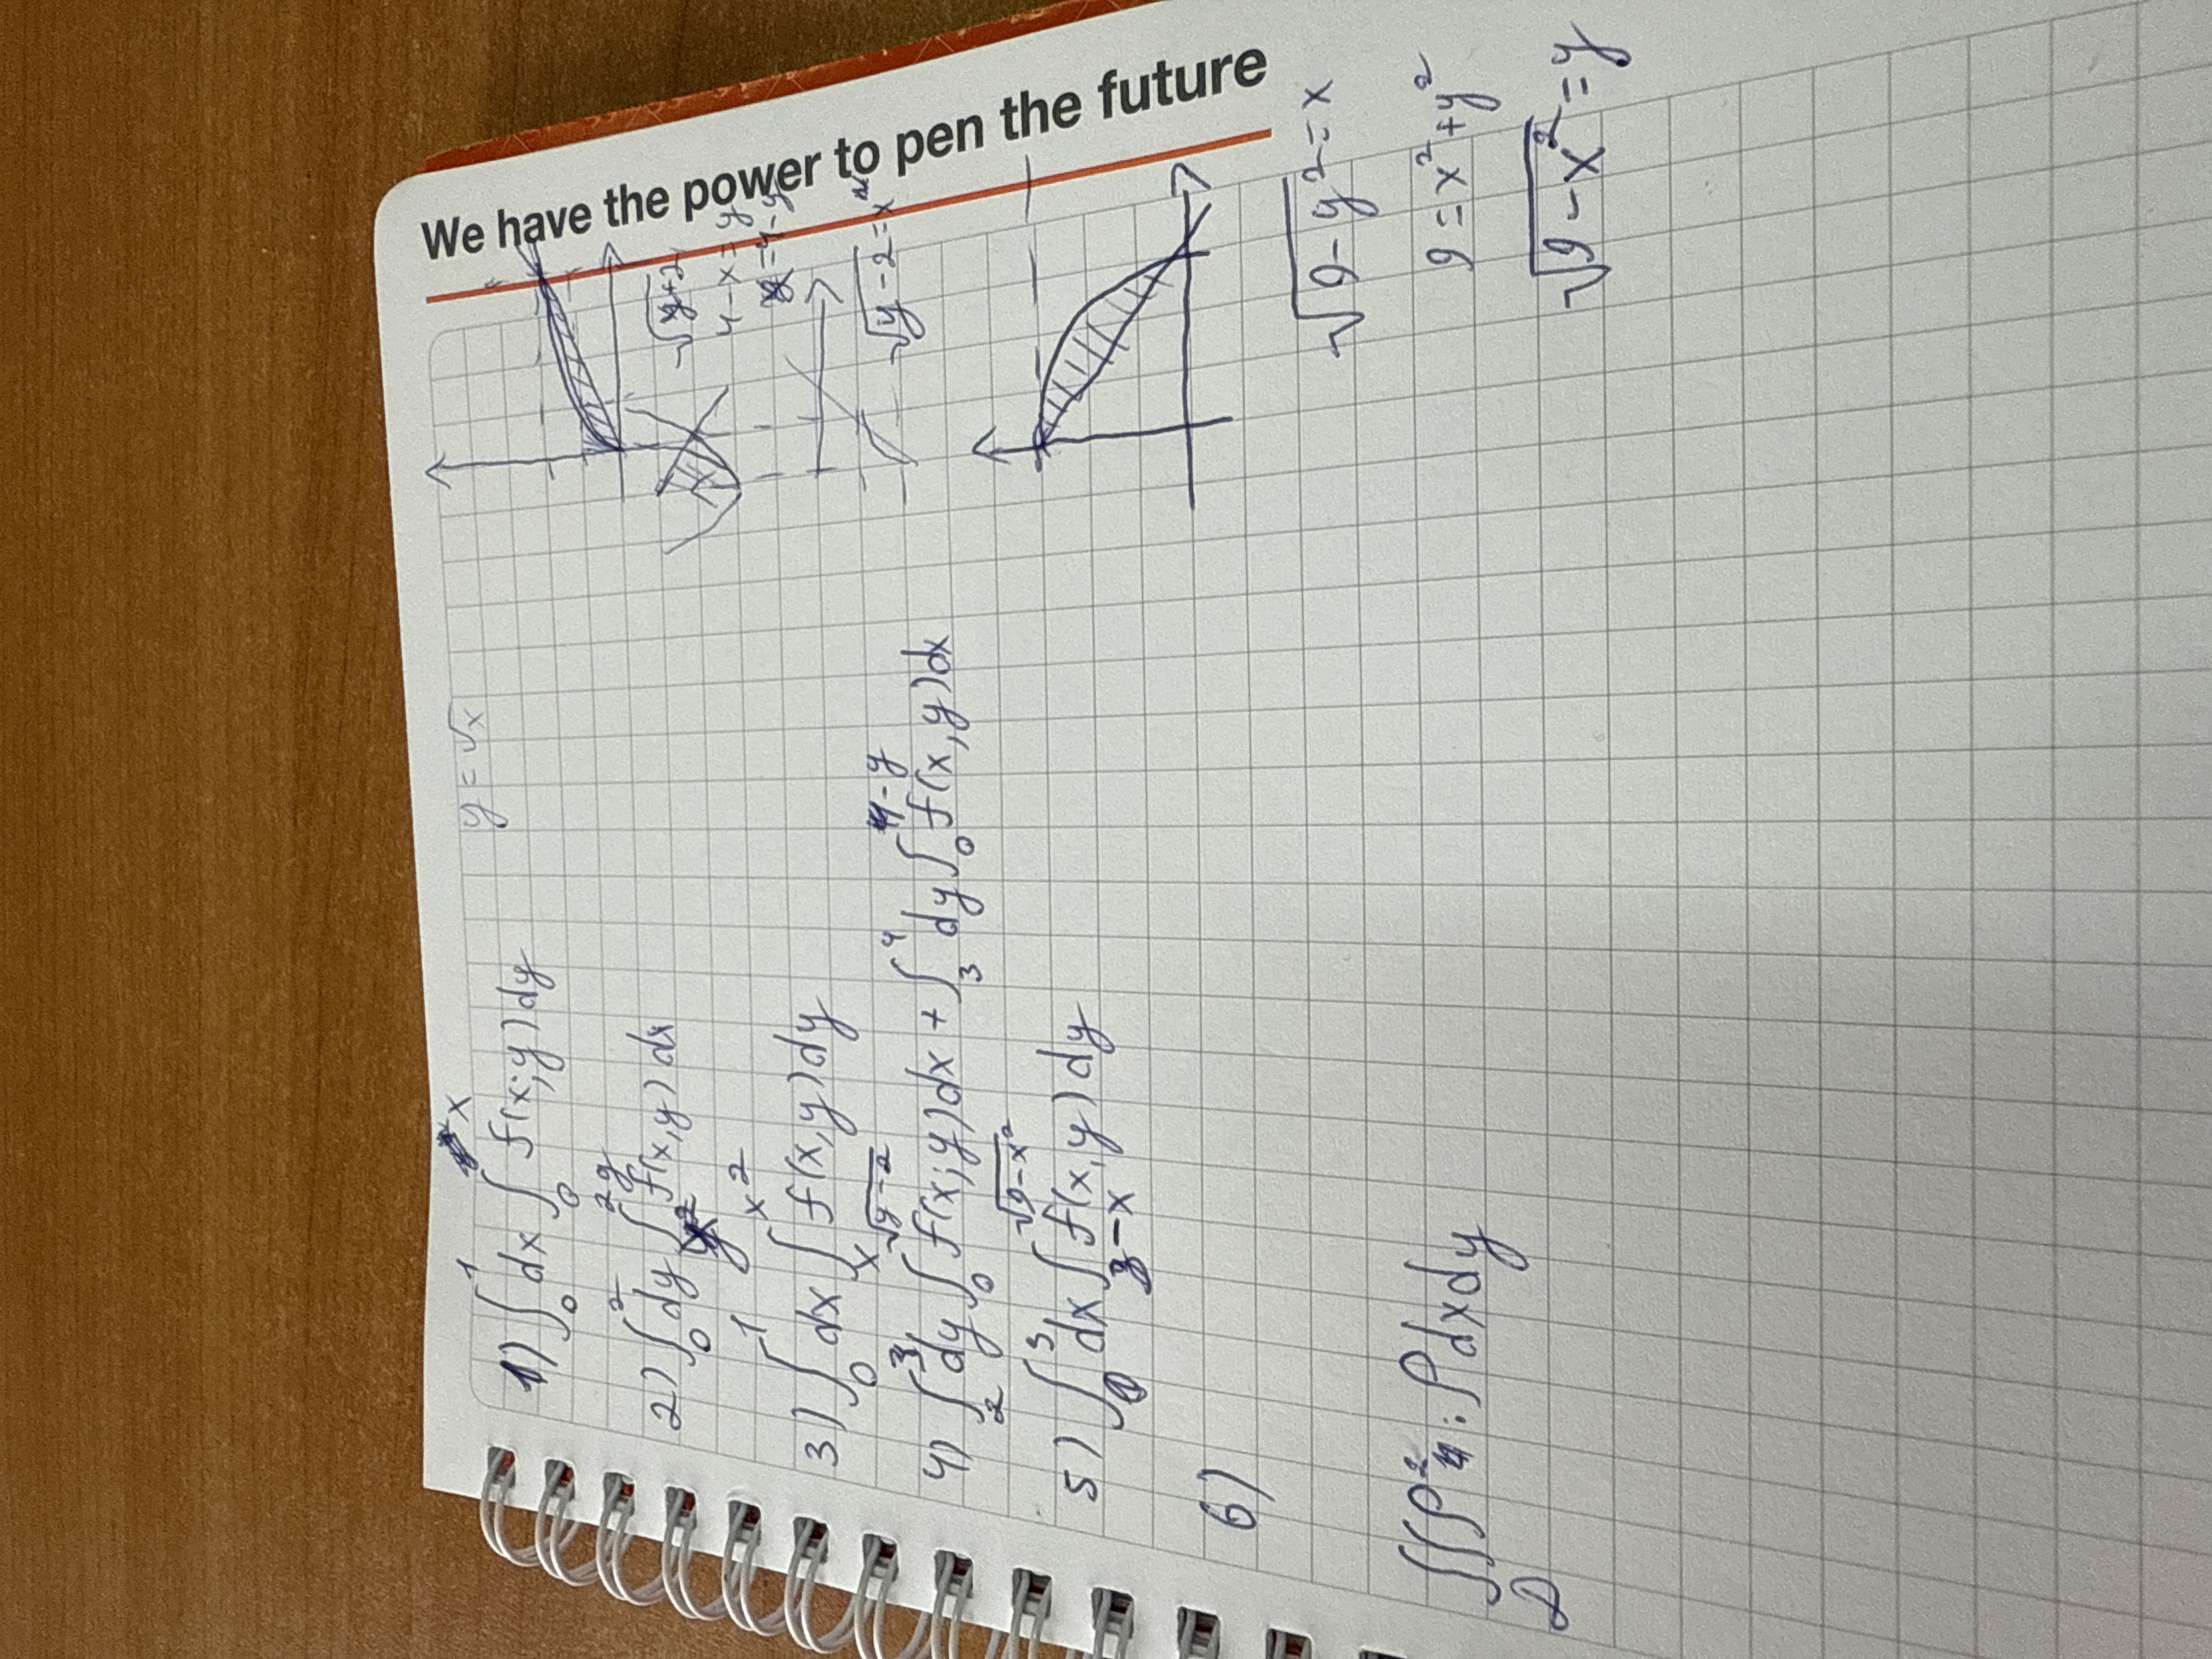 We have the power to pen the future
y = √x
1) ∫₀¹ dx ∫₀ˣ f(x;y)dy
2) ∫₀² dy ∫ 2y f(x,y)dx
3) ∫₀¹ dx ∫ₓ^(x²) f(x,y)dy
4) ∫₂³ dy ∫₀^(√(y-2)) f(x;y)dx + ∫₃⁴ dy ∫₀^(4-y) f(x,y)dx
5) ∫₀³ dx ∫_(3-x)^(√(9-x²)) f(x,y)dy
6)
∫∫ ρ² : ρ dx dy
D
4-x=y
=4-y
√(y-2)=x
√(9-y²)=x
9=x²+y²
√(9-x²)=y